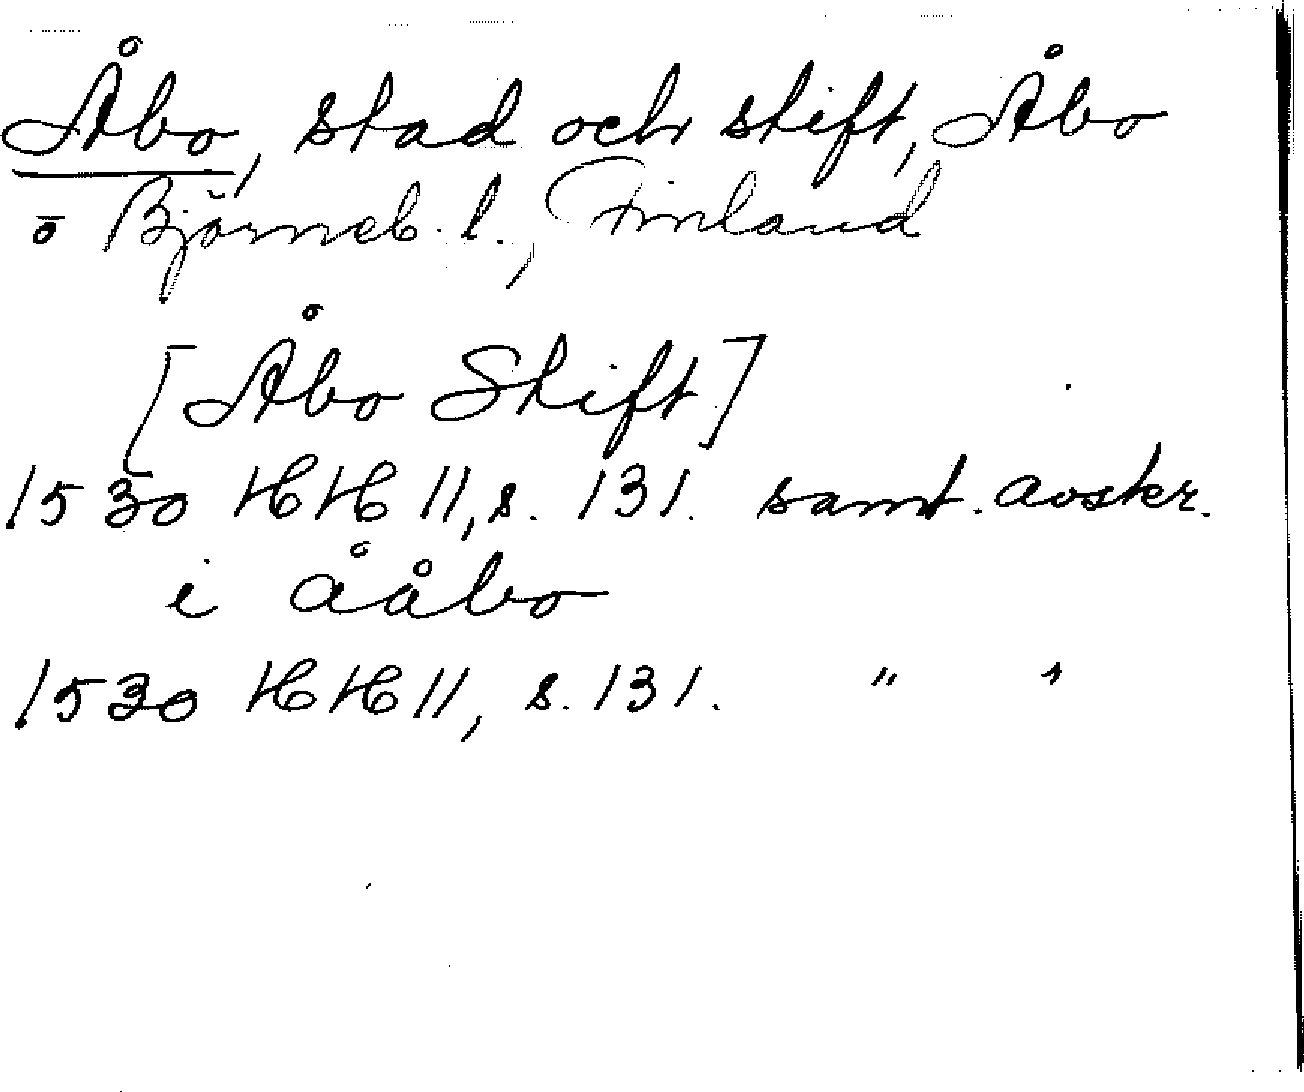 Åbo, stad och stift, Åbo
o Björneb. l., Finland
[Åbo Stift]
1530 HH 11, s. 131. samt. avskr.
i Aåbo
1530 HH 11, s. 131. " "